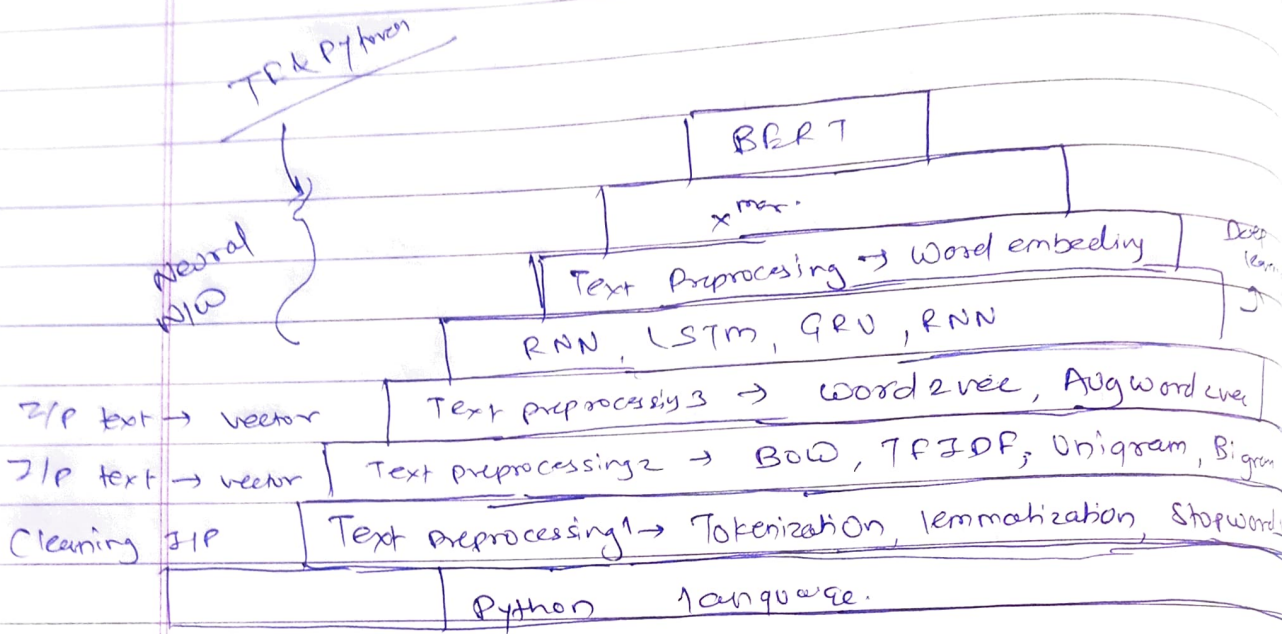 TF & Pytorch
BERT
Xmer.
Text Preprocesing → Word embeeding
Deep
Neural
N/W
RNN, LSTM, GRU, RNN
I/P text → vector
Text preprocessing 3 → word2vec, Avgword2vec
I/P text → vector
Text preprocessing2 → BOW, TFIDF, Unigram, Bigram
Cleaning I/P
Text preprocessing1 → Tokenization, lemmatization, Stopword
Python language.